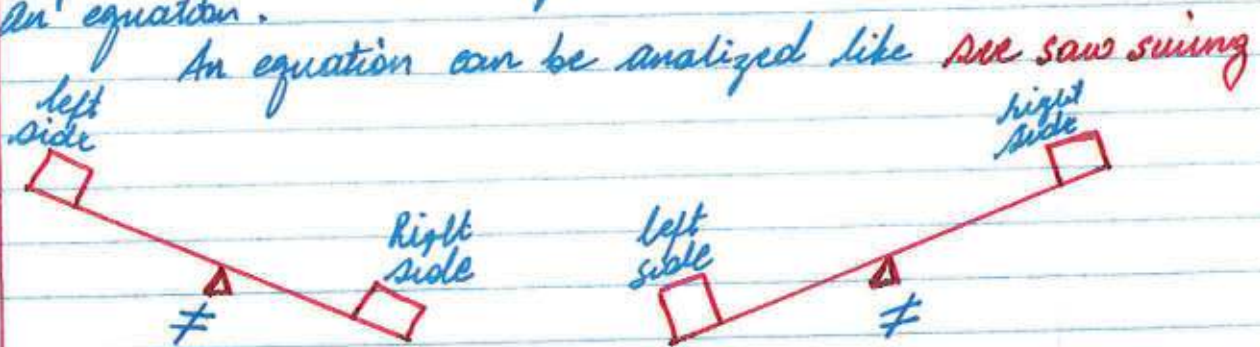 an equation.
An equation can be analized like see saw swing
left
side
right
side
Right
side
left
side
≠
≠